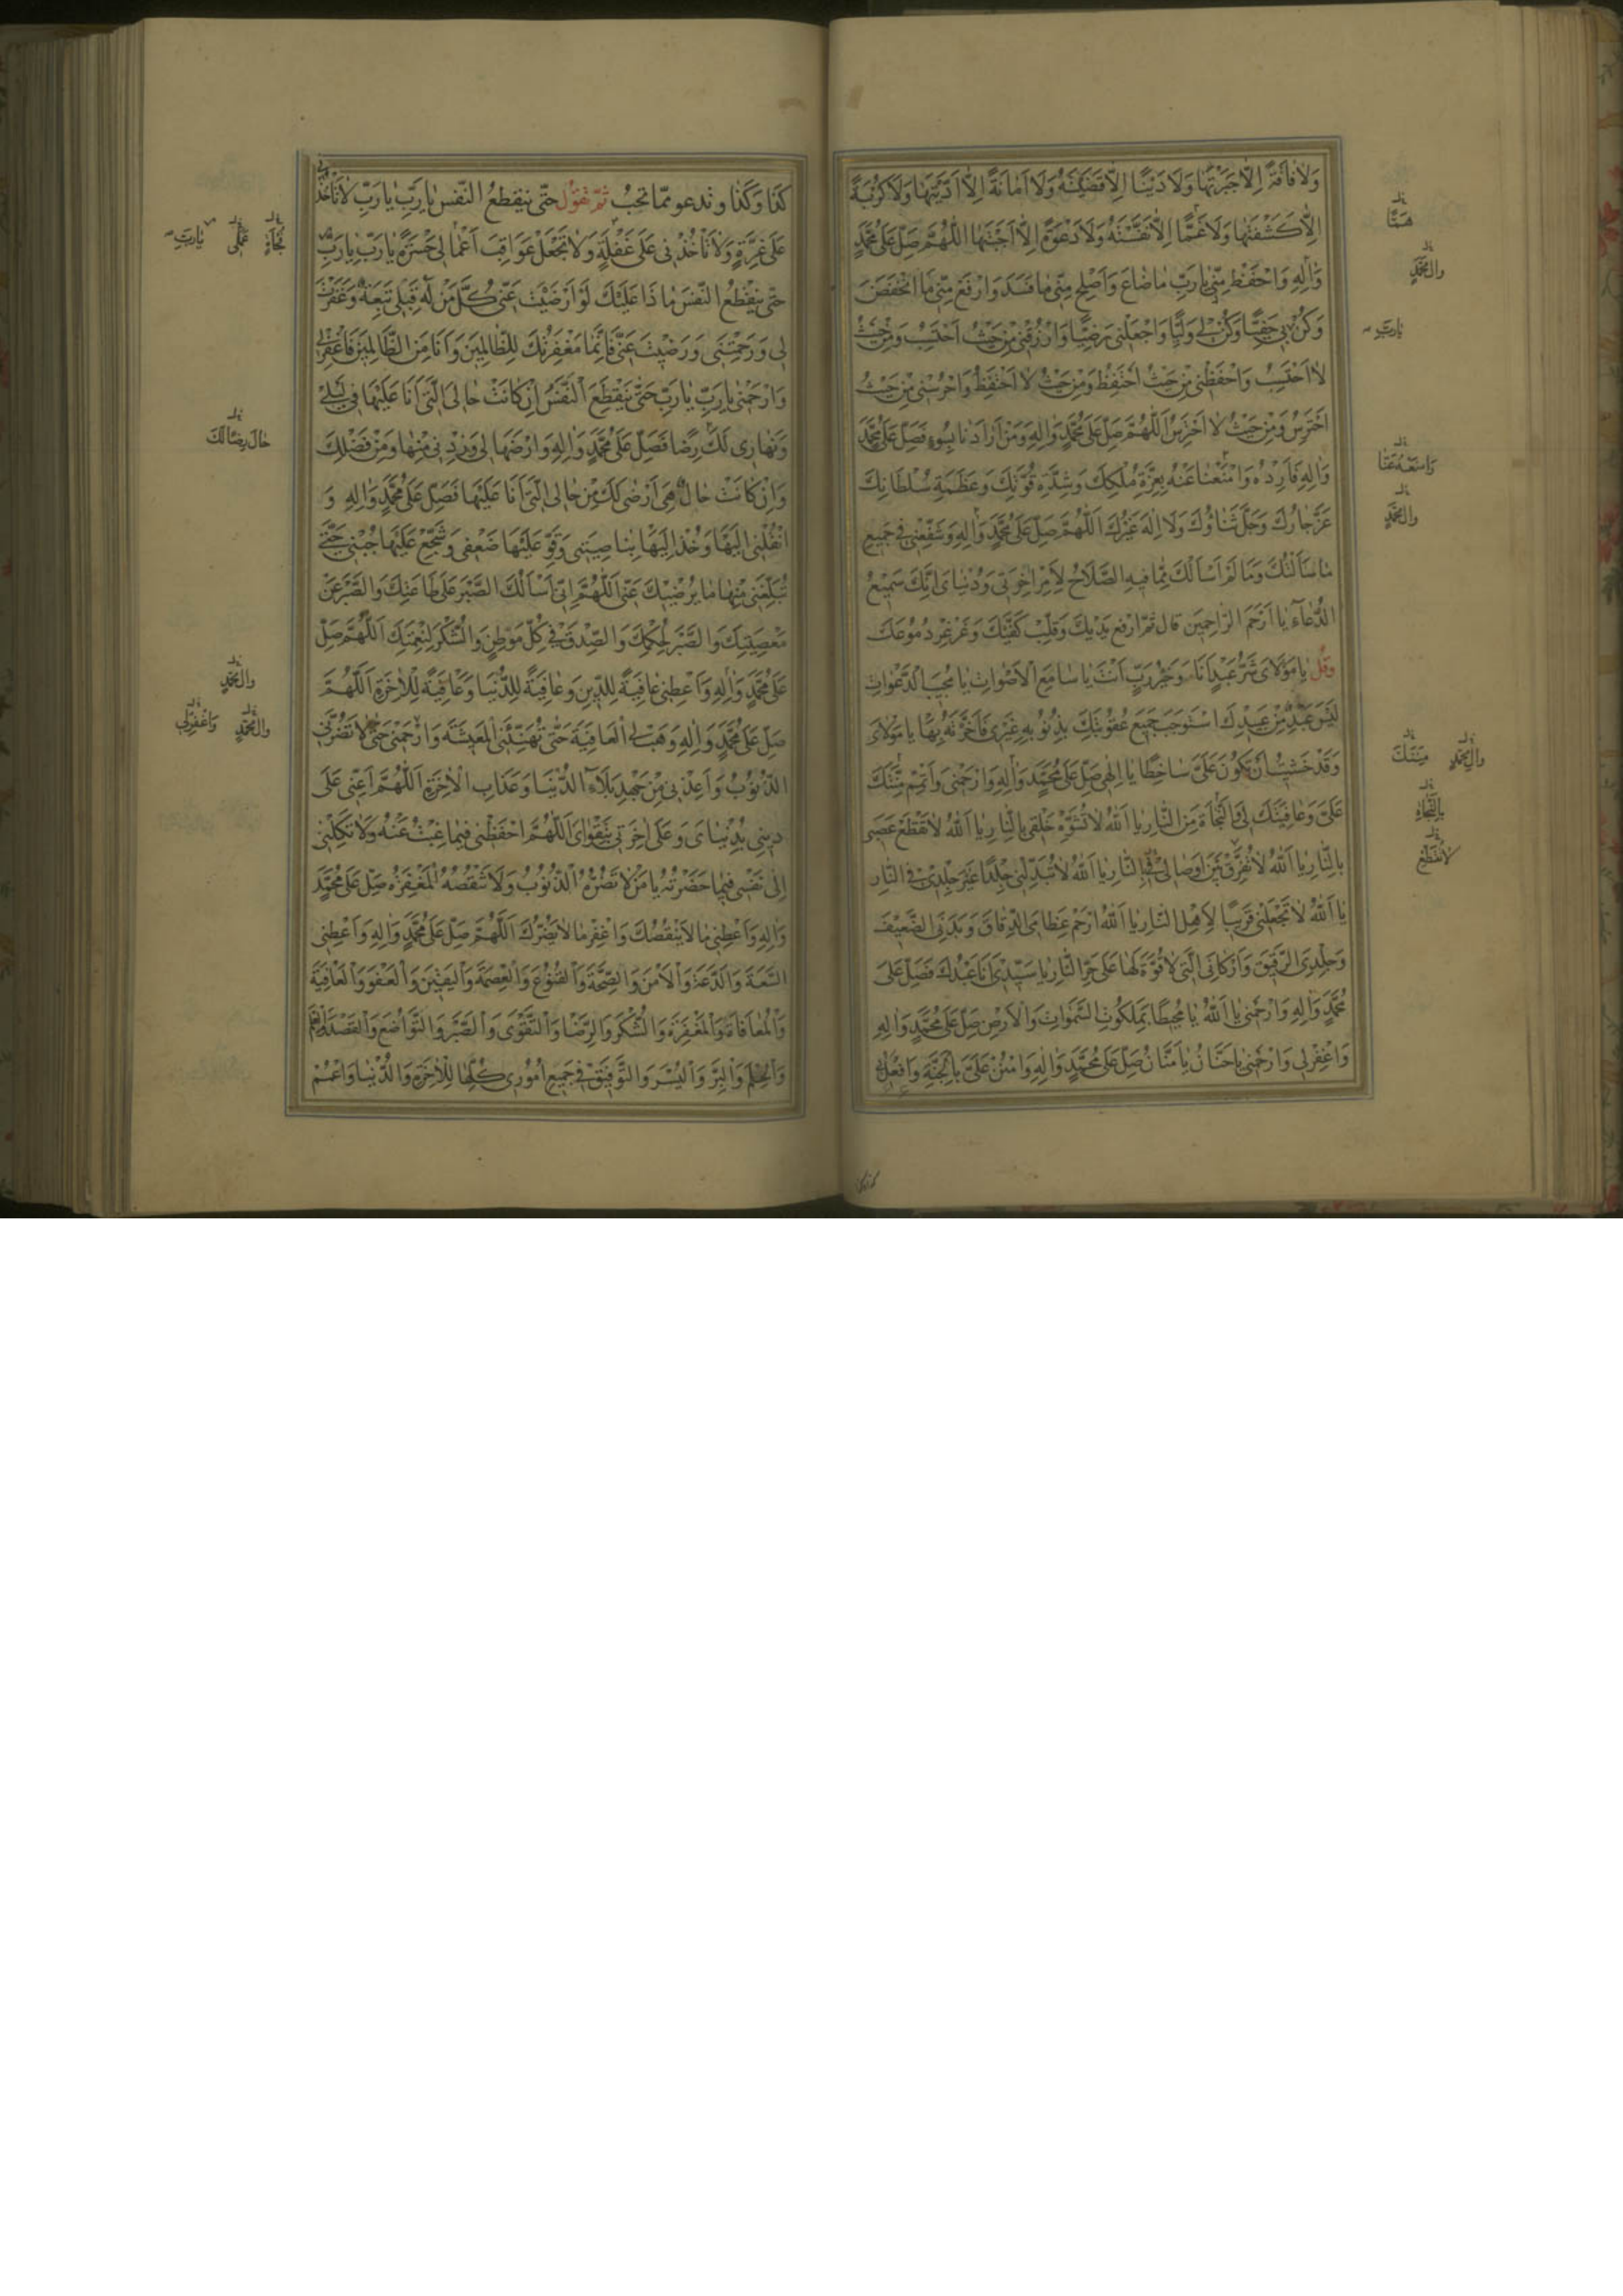 وَلَا فَاقَةً اِلَّا جَبَرْتَهَا وَلَا دَيْنًا اِلَّا قَضَيْتَهُ وَلَا اَمَانَةً اِلَّا اَدَّيْتَهَا وَلَا كُرْبَةً
اِلَّا كَشَفْتَهَا وَلَا غَمًّا اِلَّا نَفَّسْتَهُ وَلَا دَعْوَةً اِلَّا اَجَبْتَهَا اَللّٰهُمَّ صَلِّ عَلٰى مُحَمَّدٍ
وَاٰلِهِ وَاحْفَظْ مِنّى يَا رَبِّ مَا ضَاعَ وَاَصْلِحْ مِنّى مَا فَسَدَ وَارْفَعْ مِنّى مَا انْخَفَضَ
وَكُنْ بى حَفِيًّا وَكُنْ لى وَلِيًّا وَاجْعَلْنى رَضِيًّا وَارْزُقْنى مِنْ حَيْثُ اَحْتَسِبُ وَمِنْ حَيْثُ
لَا اَحْتَسِبُ وَاحْفَظْنى مِنْ حَيْثُ اَحْتَفِظُ وَمِنْ حَيْثُ لَا اَحْتَفِظُ وَاحْرُسْنى مِنْ حَيْثُ
اَحْتَرِسُ وَمِنْ حَيْثُ لَا اَحْتَرِسُ اَللّٰهُمَّ صَلِّ عَلٰى مُحَمَّدٍ وَاٰلِهِ وَمَنْ اَرَادَنَا بِسُوءٍ فَصَلِّ عَلٰى مُحَمَّدٍ
وَاٰلِهِ فَارْدُدْهُ وَامْنَعْنَا عَنْهُ بِعِزَّةِ مُلْكِكَ وَشِدَّةِ قُوَّتِكَ وَعَظَمَةِ سُلْطَانِكَ
عَزَّ جَارُكَ وَجَلَّ ثَنَاؤُكَ وَلَا اِلٰهَ غَيْرُكَ اَللّٰهُمَّ صَلِّ عَلٰى مُحَمَّدٍ وَاٰلِهِ وَشَفِّعْنى فى جَميعِ
مَا سَاَلْتُكَ وَمَا لَمْ اَسْاَلْكَ مِمَّا فيهِ الصَّلَاحُ لِاَمْرِ اٰخِرَتى وَدُنْيَاىَ اِنَّكَ سَميعُ
الدُّعَاءِ يَا اَرْحَمَ الرَّاحِمِينَ قال ثم ارفع يَدَيْكَ وَقَلِّبْ كَفَّيْكَ وَغَرْغِرْ دُمُوعَكَ
وَقُلْ يَا مَوْلَاىَ شَرُّ عَبْدٍ اَنَا وَخَيْرُ رَبٍّ اَنْتَ يَا سَامِعَ الْاَصْوَاتِ يَا مُجيبَ الدَّعَوَاتِ
لَيْسَ عَبْدٌ مِنْ عَبيدِكَ اسْتَوْجَبَ جَميعَ عُقُوبَتِكَ بِذُنُوبِهِ غَيْرى فَاَخَّرْتَهُ بِهَا يَا مَوْلَاىَ
وَقَدْ خَشيتُ اَنْ تَكُونَ عَلَىَّ سَاخِطًا يَا اِلٰهى صَلِّ عَلٰى مُحَمَّدٍ وَاٰلِهِ وَارْحَمْنى وَاَتْمِمْ مِنَّتَكَ
عَلَىَّ وَعَافِيَتَكَ لى فَالنَّجَاةَ مِنَ النَّارِ يَا اَللّٰهُ لَا تُشَوِّهْ خَلْقى بِالنَّارِ يَا اَللّٰهُ لَا تَقْطَعْ عَصَبى
بِالنَّارِ يَا اَللّٰهُ لَا تُفَرِّقْ بَيْنَ اَوْصَالى فى النَّارِ يَا اَللّٰهُ لَا تُبَدِّلْنى جِلْدًا غَيْرَ جِلْدى فى النَّارِ
يَا اَللّٰهُ لَا تَجْعَلْنى قَرينًا لِاَهْلِ النَّارِ يَا اَللّٰهُ ارْحَمْ عِظَامِىَ الدِّقَاقَ وَبَدَنِىَ الضَّعيفَ
وَجِلْدِىَ الرَّقيقَ وَاَرْكَانِىَ الَّتى لَا قُوَّةَ لَهَا عَلٰى حَرِّ النَّارِ يَا سَيِّدى اَنَا عَبْدُكَ فَصَلِّ عَلٰى
مُحَمَّدٍ وَاٰلِهِ وَارْحَمْنى يَا اَللّٰهُ يَا مُحيطًا بِمَلَكُوتِ السَّمٰوَاتِ وَالْاَرْضِ صَلِّ عَلٰى مُحَمَّدٍ وَاٰلِهِ
وَاغْفِرْ لى وَارْحَمْنى يَا حَنَّانُ يَا مَنَّانُ صَلِّ عَلٰى مُحَمَّدٍ وَاٰلِهِ وَامْنُنْ عَلَىَّ بِالْجَنَّةِ وَافْعَلْ بى
هَمًّا
وَاٰلِ مُحَمَّدٍ
يَا رَبِّ
وَاٰلِ مُحَمَّدٍ
وَاٰلِ مُحَمَّدٍ مِنَنَكَ
بِالنَّجَاةِ
لَا تُقَطِّعْ
كَذَا وَكَذَا وتدعو ممّا تحبّ ثُمَّ تَقُولُ حَتّى ينقطع النَّفَس يَا رَبِّ يَا رَبِّ لَا تَاْخُذْنى
عَلٰى غِرَّةٍ وَلَا تَاْخُذْنى عَلٰى غَفْلَةٍ وَلَا تَجْعَلْ عَوَاقِبَ اَعْمَالى حَسْرَةً يَا رَبِّ يَا رَبِّ
حَتّٰى يَنْقَطِعَ النَّفَسُ مَا ذَا عَلَيْكَ لَوْ اَرْضَيْتَ عَنّى كُلَّ مَنْ لَهُ قِبَلى تَبِعَةٌ وَغَفَرْتَ
لى وَرَحِمْتَنى وَرَضيتَ عَنّى فَاِنَّمَا مَغْفِرَتُكَ لِلظَّالِمينَ وَاَنَا مِنَ الظَّالِمينَ فَاغْفِرْ لى
وَارْحَمْنى يَا رَبِّ يَا رَبِّ حَتّٰى يَنْقَطِعَ النَّفَسُ اِنْ كَانَتْ حَالى الَّتى اَنَا عَلَيْهَا فى لَيْلى
وَنَهَارى لَكَ رِضًا فَصَلِّ عَلٰى مُحَمَّدٍ وَاٰلِهِ وَارْضَهَا لى وَزِدْنى مِنْهَا وَمِنْ فَضْلِكَ
وَاِنْ كَانَتْ حَالٌ هِىَ اَرْضٰى لَكَ مِنْ حَالِىَ الَّتى اَنَا عَلَيْهَا فَصَلِّ عَلٰى مُحَمَّدٍ وَاٰلِهِ وَ
انْقُلْنى اِلَيْهَا وَخُذْ اِلَيْهَا بِنَاصِيَتى وَقَوِّ عَلَيْهَا ضَعْفى وَشَجِّعْ عَلَيْهَا جُبْنى حَتّٰى
تُبَلِّغَنى مِنْهَا مَا يُرْضيكَ عَنّى اَللّٰهُمَّ اِنّى اَسْاَلُكَ الصَّبْرَ عَلٰى طَاعَتِكَ وَالصَّبْرَ عَنْ
مَعْصِيَتِكَ وَالصَّبْرَ لِحُكْمِكَ وَالصِّدْقَ فى كُلِّ مَوْطِنٍ وَالشُّكْرَ لِنِعْمَتِكَ اَللّٰهُمَّ صَلِّ
عَلٰى مُحَمَّدٍ وَاٰلِهِ وَاَعْطِنى عَافِيَةً لِلدّينِ وَعَافِيَةً لِلدُّنْيَا وَعَافِيَةً لِلْاٰخِرَةِ اَللّٰهُمَّ
صَلِّ عَلٰى مُحَمَّدٍ وَاٰلِهِ وَهَبْ لِىَ الْعَافِيَةَ حَتّٰى تُهَنِّئَنِى الْمَعيشَةَ وَارْحَمْنى حَتّٰى لَا تَضُرَّنى
الذُّنُوبُ وَاَعِذْنى مِنْ جَهْدِ بَلَاءِ الدُّنْيَا وَعَذَابِ الْاٰخِرَةِ اَللّٰهُمَّ اَعِنّى عَلٰى
دينى بِدُنْيَاىَ وَعَلٰى اٰخِرَتى بِتَقْوَاىَ اَللّٰهُمَّ احْفَظْنى فيمَا غِبْتُ عَنْهُ وَلَا تَكِلْنى
اِلٰى نَفْسى فيمَا حَضَرْتُهُ يَا مَنْ لَا تَضُرُّهُ الذُّنُوبُ وَلَا تَنْقُصُهُ الْمَغْفِرَةُ صَلِّ عَلٰى مُحَمَّدٍ
وَاٰلِهِ وَاَعْطِنى مَا لَا يَنْقُصُكَ وَاغْفِرْ مَا لَا يَضُرُّكَ اَللّٰهُمَّ صَلِّ عَلٰى مُحَمَّدٍ وَاٰلِهِ وَاَعْطِنى
السَّعَةَ وَالدَّعَةَ وَالْاَمْنَ وَالصِّحَّةَ وَالْقُنُوعَ وَالْعِصْمَةَ وَالْيَقينَ وَالْعَفْوَ وَالْعَافِيَةَ
وَالْمُعَافَاةَ وَالْمَغْفِرَةَ وَالشُّكْرَ وَالرِّضَا وَالتَّقْوٰى وَالصَّبْرَ وَالتَّوَاضُعَ وَالْقَصْدَ وَالْعِلْمَ
وَالْحِلْمَ وَالْبِرَّ وَالْيُسْرَ وَالتَّوْفيقَ فى جَميعِ اُمُورى كُلِّهَا لِلْاٰخِرَةِ وَالدُّنْيَا وَاعْمُمْ
يَا رَبِّ
وَاٰلِ مُحَمَّدٍ
وَاٰلِ مُحَمَّدٍ وَاغْفِرْ لى